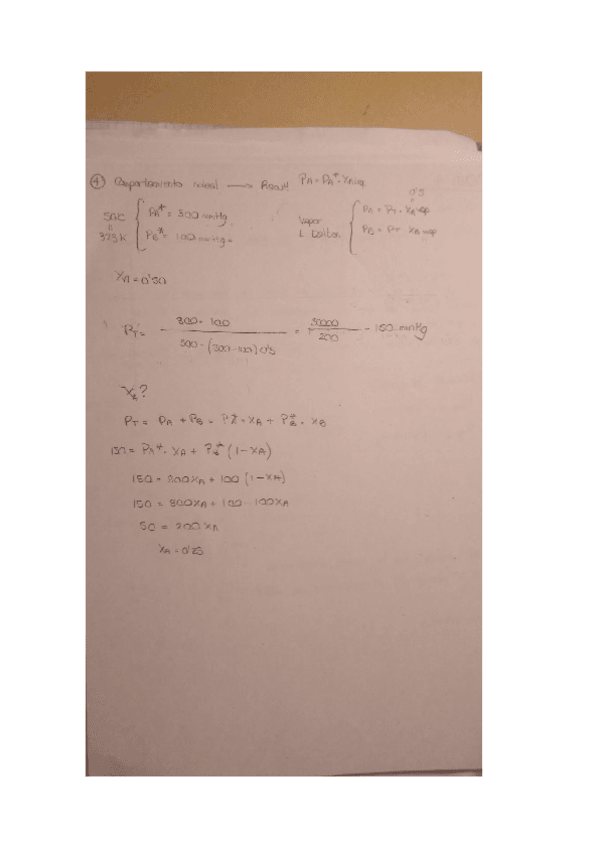 ④ Comportamiento ideal → Raoult PA = PA* · XA liq
0'5
50ºC { PA* = 300 mmHg Vapor { PA = PT · XA vap
323K { PB* = 100 mmHg L Dalton { PB = PT XB vap
XA = 0'50
PT = 300 · 100 / 300 - (300-100) 0'5 = 30000 / 200 = 150 mmHg
XA?
PT = PA + PB = PA* · XA + PB* · XB
150 = PA* · XA + PB* (1-XA)
150 = 300XA + 100 (1-XA)
150 = 300XA + 100 - 100XA
50 = 200 XA
XA = 0'25